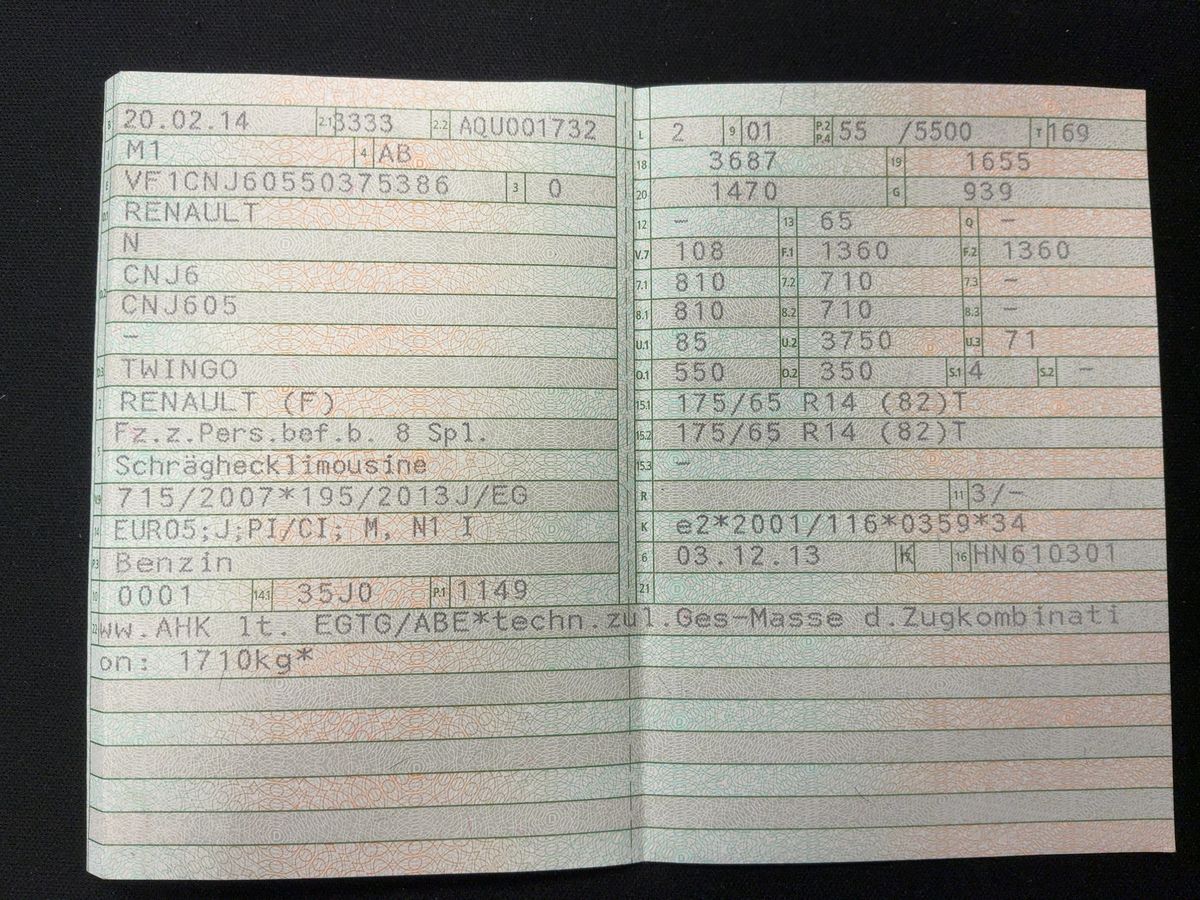 B 20.02.14 2.1 3333 2.2 AQU001732
J M1 4 AB
E VF1CNJ60550375386 3 0
D.1 RENAULT
N
D.2 CNJ6
CNJ605
–
D.3 TWINGO
2 RENAULT (F)
5 Fz.z.Pers.bef.b. 8 Spl.
Schräghecklimousine
V.9 715/2007*195/2013J/EG
14 EURO5;J;PI/CI; M, N1 I
P.3 Benzin
10 0001 14.1 35J0 P.1 1149
L 2 9 01 P.2 P.4 55 /5500 T 169
18 3687 19 1655
20 1470 G 939
12 – 13 65 Q –
V.7 108 F.1 1360 F.2 1360
7.1 810 7.2 710 7.3 –
8.1 810 8.2 710 8.3 –
U.1 85 U.2 3750 U.3 71
O.1 550 O.2 350 S.1 4 S.2 –
15.1 175/65 R14 (82)T
15.2 175/65 R14 (82)T
15.3 –
R 11 3/–
K e2*2001/116*0359*34
6 03.12.13 K 16 HN610301
21
22 ww.AHK lt. EGTG/ABE*techn.zul.Ges-Masse d.Zugkombinati
on: 1710kg*